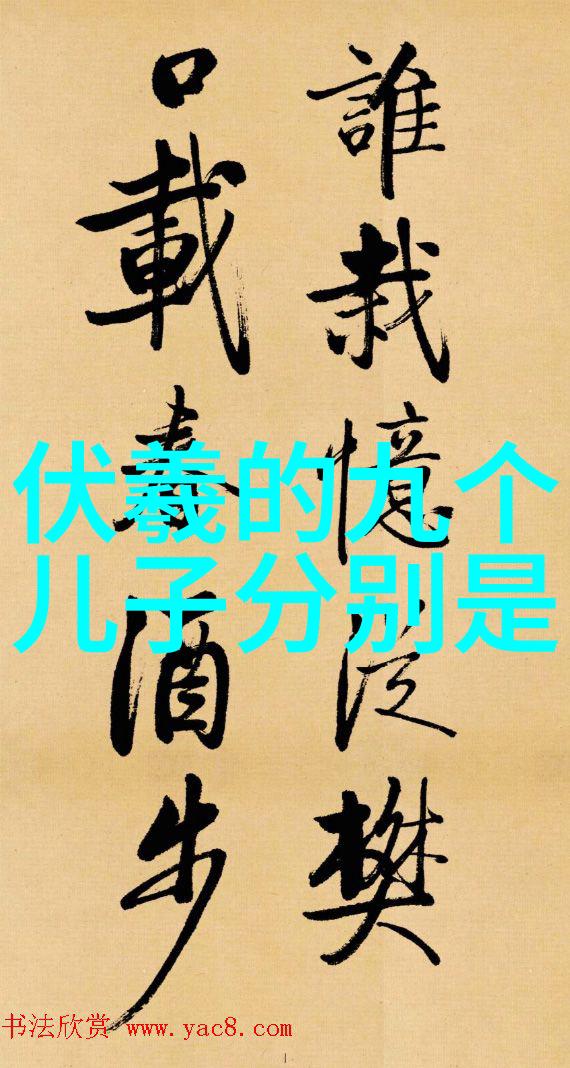 誰栽憶泛樊
口載春酒步
伏羲的九个
儿子分别是
书法欣赏 www.yac8.com